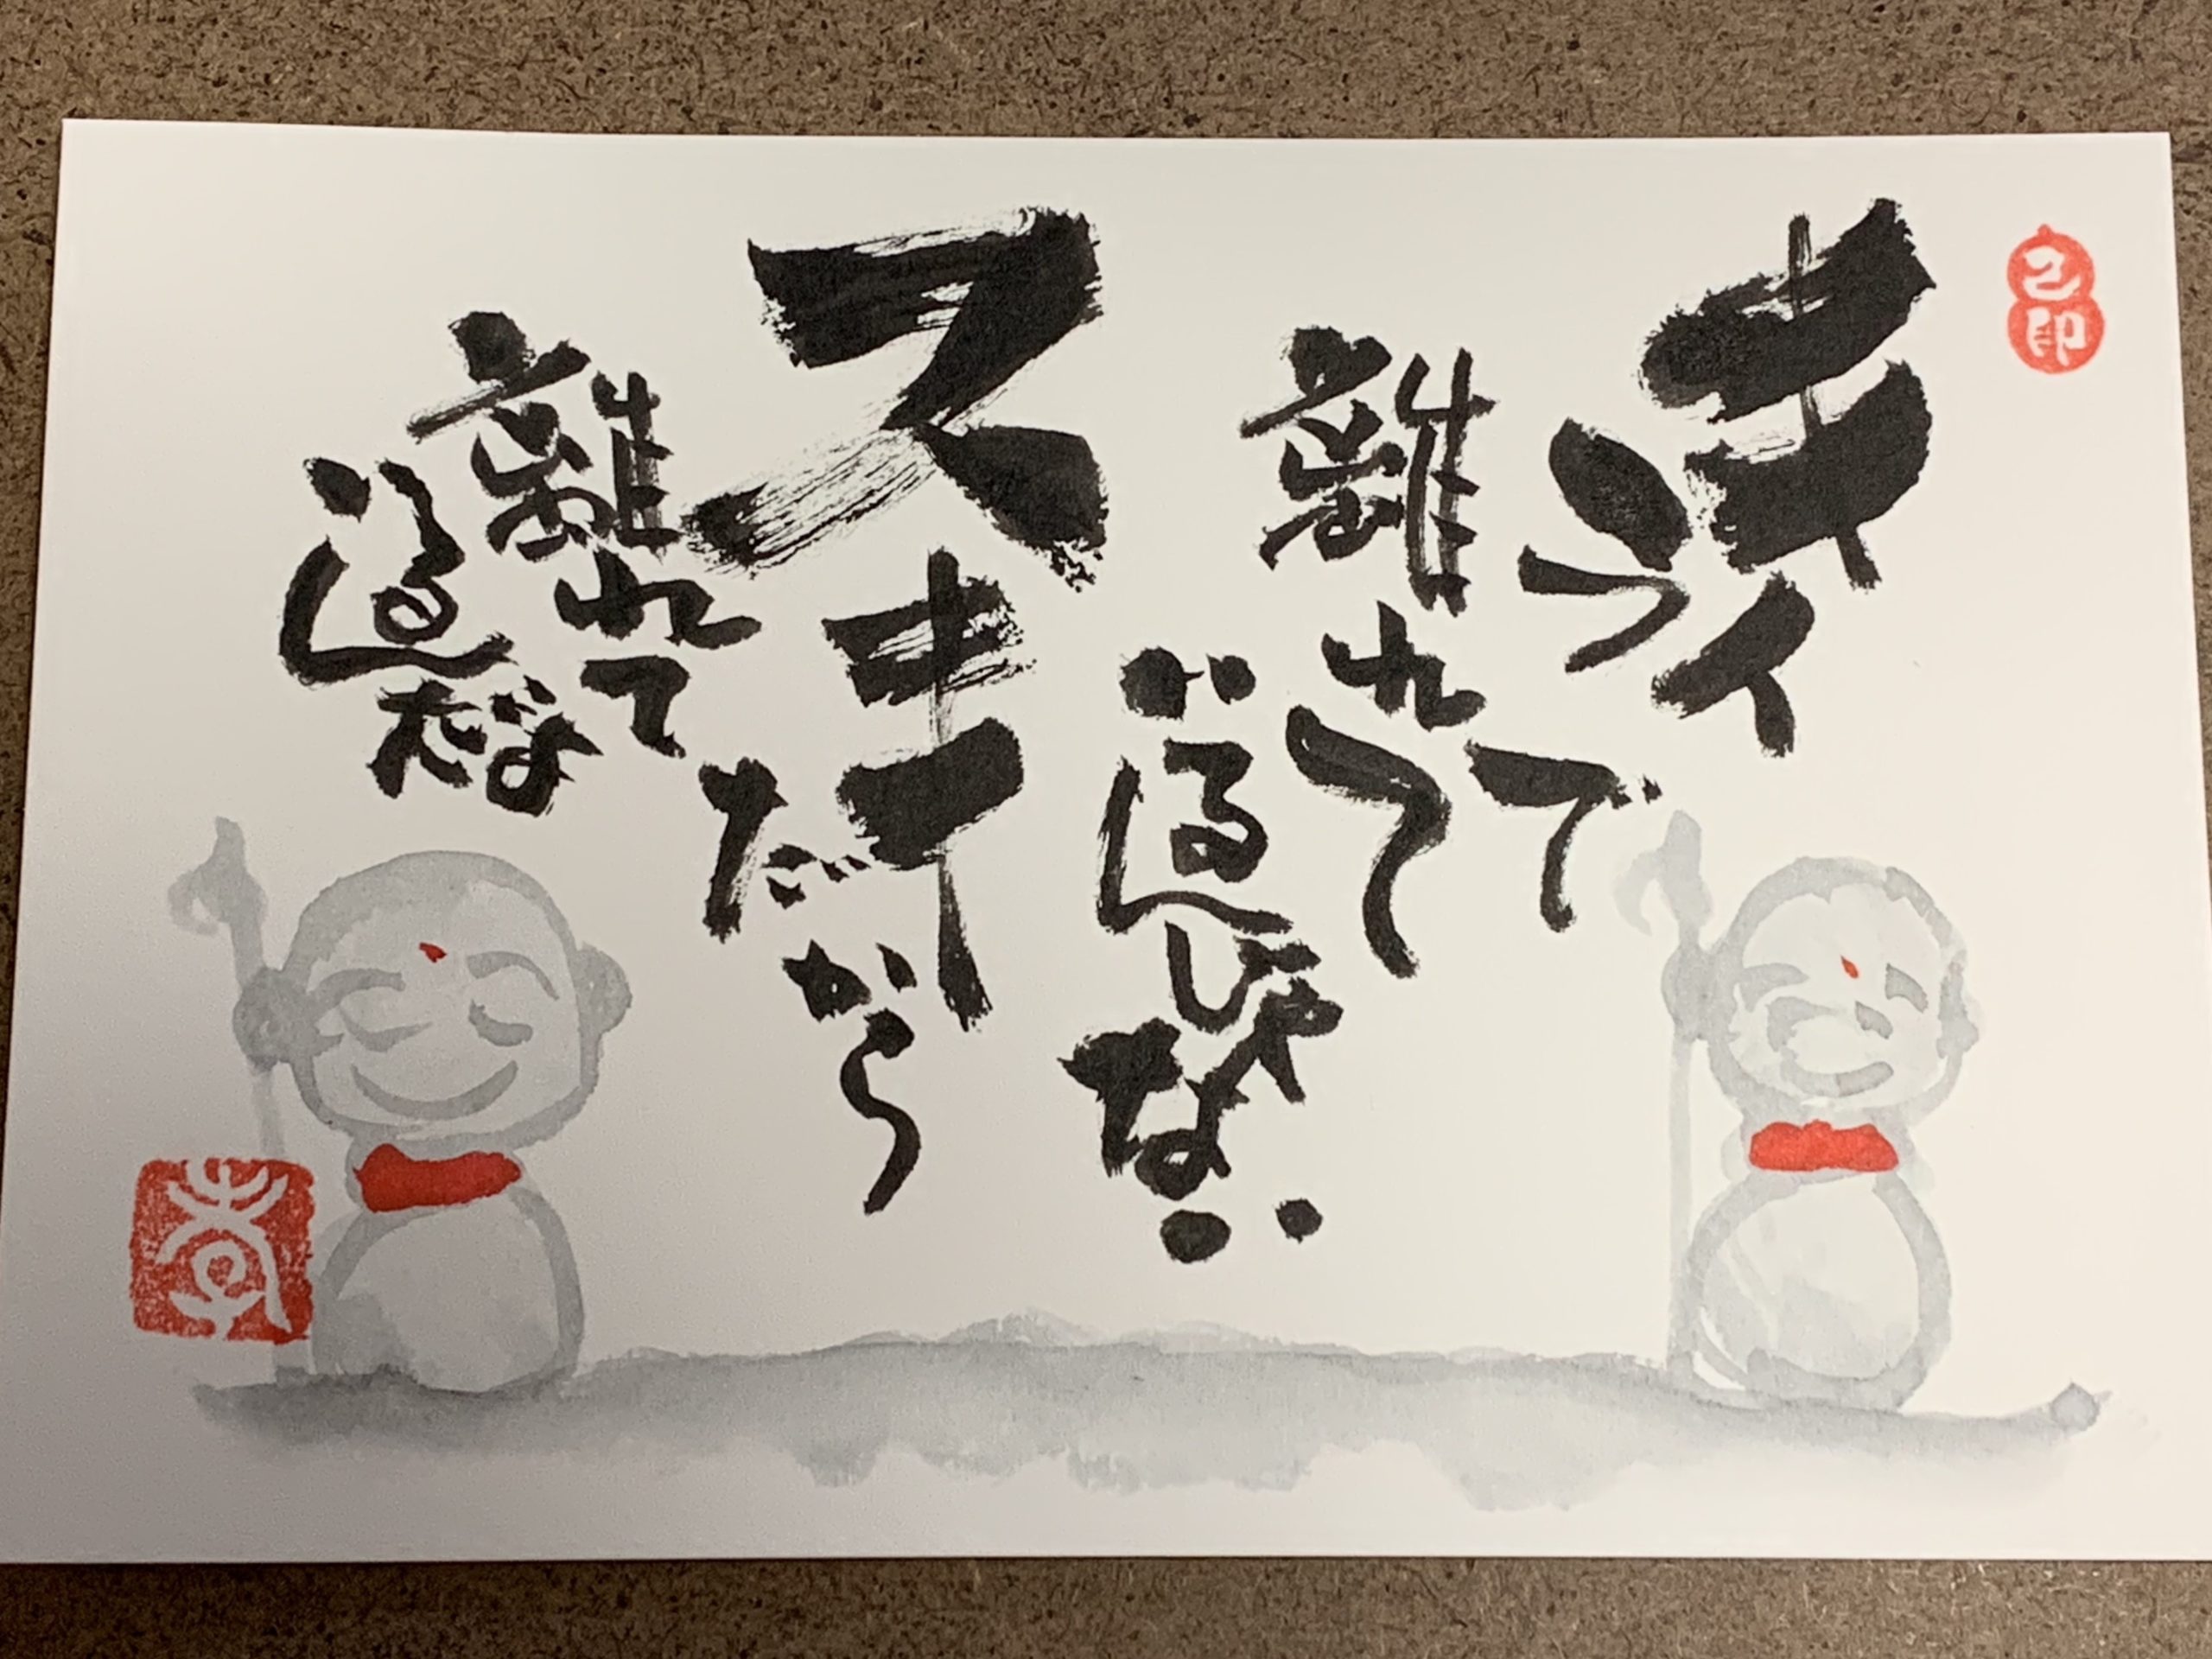 己印
キライで
離れて
いるんじゃない
スキ
だから
離れて
いるんだよ